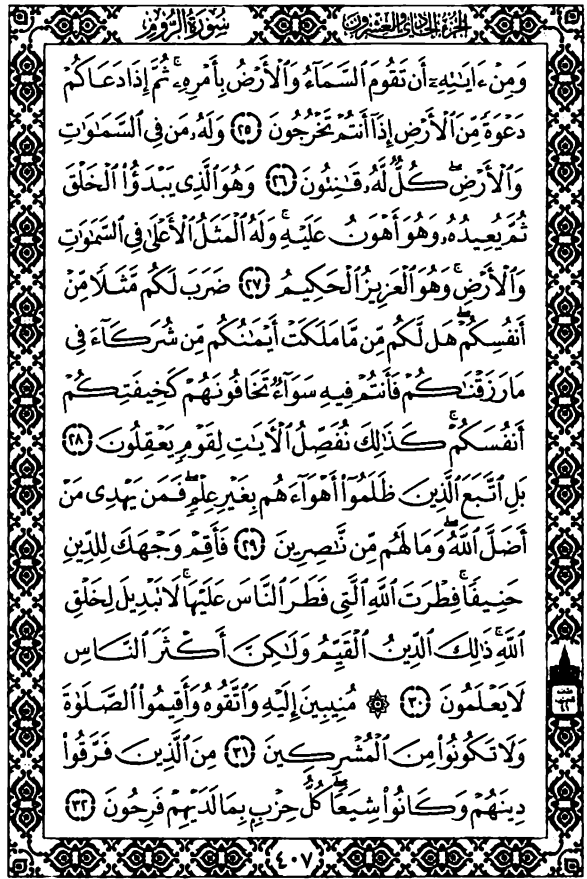 سُورَةُ الرُّومِ
الجُزْءُ الحَادِي وَالعِشْرُونَ
وَمِنْ ءَايَٰتِهِۦٓ أَن تَقُومَ ٱلسَّمَآءُ وَٱلْأَرْضُ بِأَمْرِهِۦۚ ثُمَّ إِذَا دَعَاكُمْ
دَعْوَةً مِّنَ ٱلْأَرْضِ إِذَآ أَنتُمْ تَخْرُجُونَ ٢٥ وَلَهُۥ مَن فِى ٱلسَّمَٰوَٰتِ
وَٱلْأَرْضِۖ كُلٌّ لَّهُۥ قَٰنِتُونَ ٢٦ وَهُوَ ٱلَّذِى يَبْدَؤُا۟ ٱلْخَلْقَ
ثُمَّ يُعِيدُهُۥ وَهُوَ أَهْوَنُ عَلَيْهِۚ وَلَهُ ٱلْمَثَلُ ٱلْأَعْلَىٰ فِى ٱلسَّمَٰوَٰتِ
وَٱلْأَرْضِۚ وَهُوَ ٱلْعَزِيزُ ٱلْحَكِيمُ ٢٧ ضَرَبَ لَكُم مَّثَلًا مِّنْ
أَنفُسِكُمْۖ هَل لَّكُم مِّن مَّا مَلَكَتْ أَيْمَٰنُكُم مِّن شُرَكَآءَ فِى
مَا رَزَقْنَٰكُمْ فَأَنتُمْ فِيهِ سَوَآءٌ تَخَافُونَهُمْ كَخِيفَتِكُمْ
أَنفُسَكُمْۚ كَذَٰلِكَ نُفَصِّلُ ٱلْءَايَٰتِ لِقَوْمٍ يَعْقِلُونَ ٢٨
بَلِ ٱتَّبَعَ ٱلَّذِينَ ظَلَمُوٓا۟ أَهْوَآءَهُم بِغَيْرِ عِلْمٍۖ فَمَن يَهْدِى مَنْ
أَضَلَّ ٱللَّهُۖ وَمَا لَهُم مِّن نَّٰصِرِينَ ٢٩ فَأَقِمْ وَجْهَكَ لِلدِّينِ
حَنِيفًاۚ فِطْرَتَ ٱللَّهِ ٱلَّتِى فَطَرَ ٱلنَّاسَ عَلَيْهَاۚ لَا تَبْدِيلَ لِخَلْقِ
ٱللَّهِۚ ذَٰلِكَ ٱلدِّينُ ٱلْقَيِّمُ وَلَٰكِنَّ أَكْثَرَ ٱلنَّاسِ
لَا يَعْلَمُونَ ٣٠ ۞ مُنِيبِينَ إِلَيْهِ وَٱتَّقُوهُ وَأَقِيمُوا۟ ٱلصَّلَوٰةَ
وَلَا تَكُونُوا۟ مِنَ ٱلْمُشْرِكِينَ ٣١ مِنَ ٱلَّذِينَ فَرَّقُوا۟
دِينَهُمْ وَكَانُوا۟ شِيَعًاۖ كُلُّ حِزْبٍۭ بِمَا لَدَيْهِمْ فَرِحُونَ ٣٢
٤٠٧